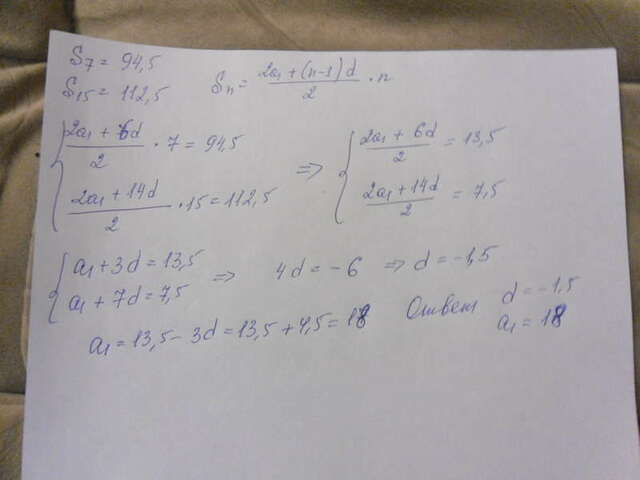 S₇ = 94,5
S₁₅ = 112,5    Sₙ = (2a₁ + (n-1)d)/2 · n
{ (2a₁ + 6d)/2 · 7 = 94,5    ⇒    { (2a₁ + 6d)/2 = 13,5
{ (2a₁ + 14d)/2 · 15 = 112,5    { (2a₁ + 14d)/2 = 7,5
{ a₁ + 3d = 13,5    ⇒    4d = -6    ⇒ d = -1,5
{ a₁ + 7d = 7,5
a₁ = 13,5 - 3d = 13,5 + 4,5 = 18    Ответ    d = -1,5
a₁ = 18